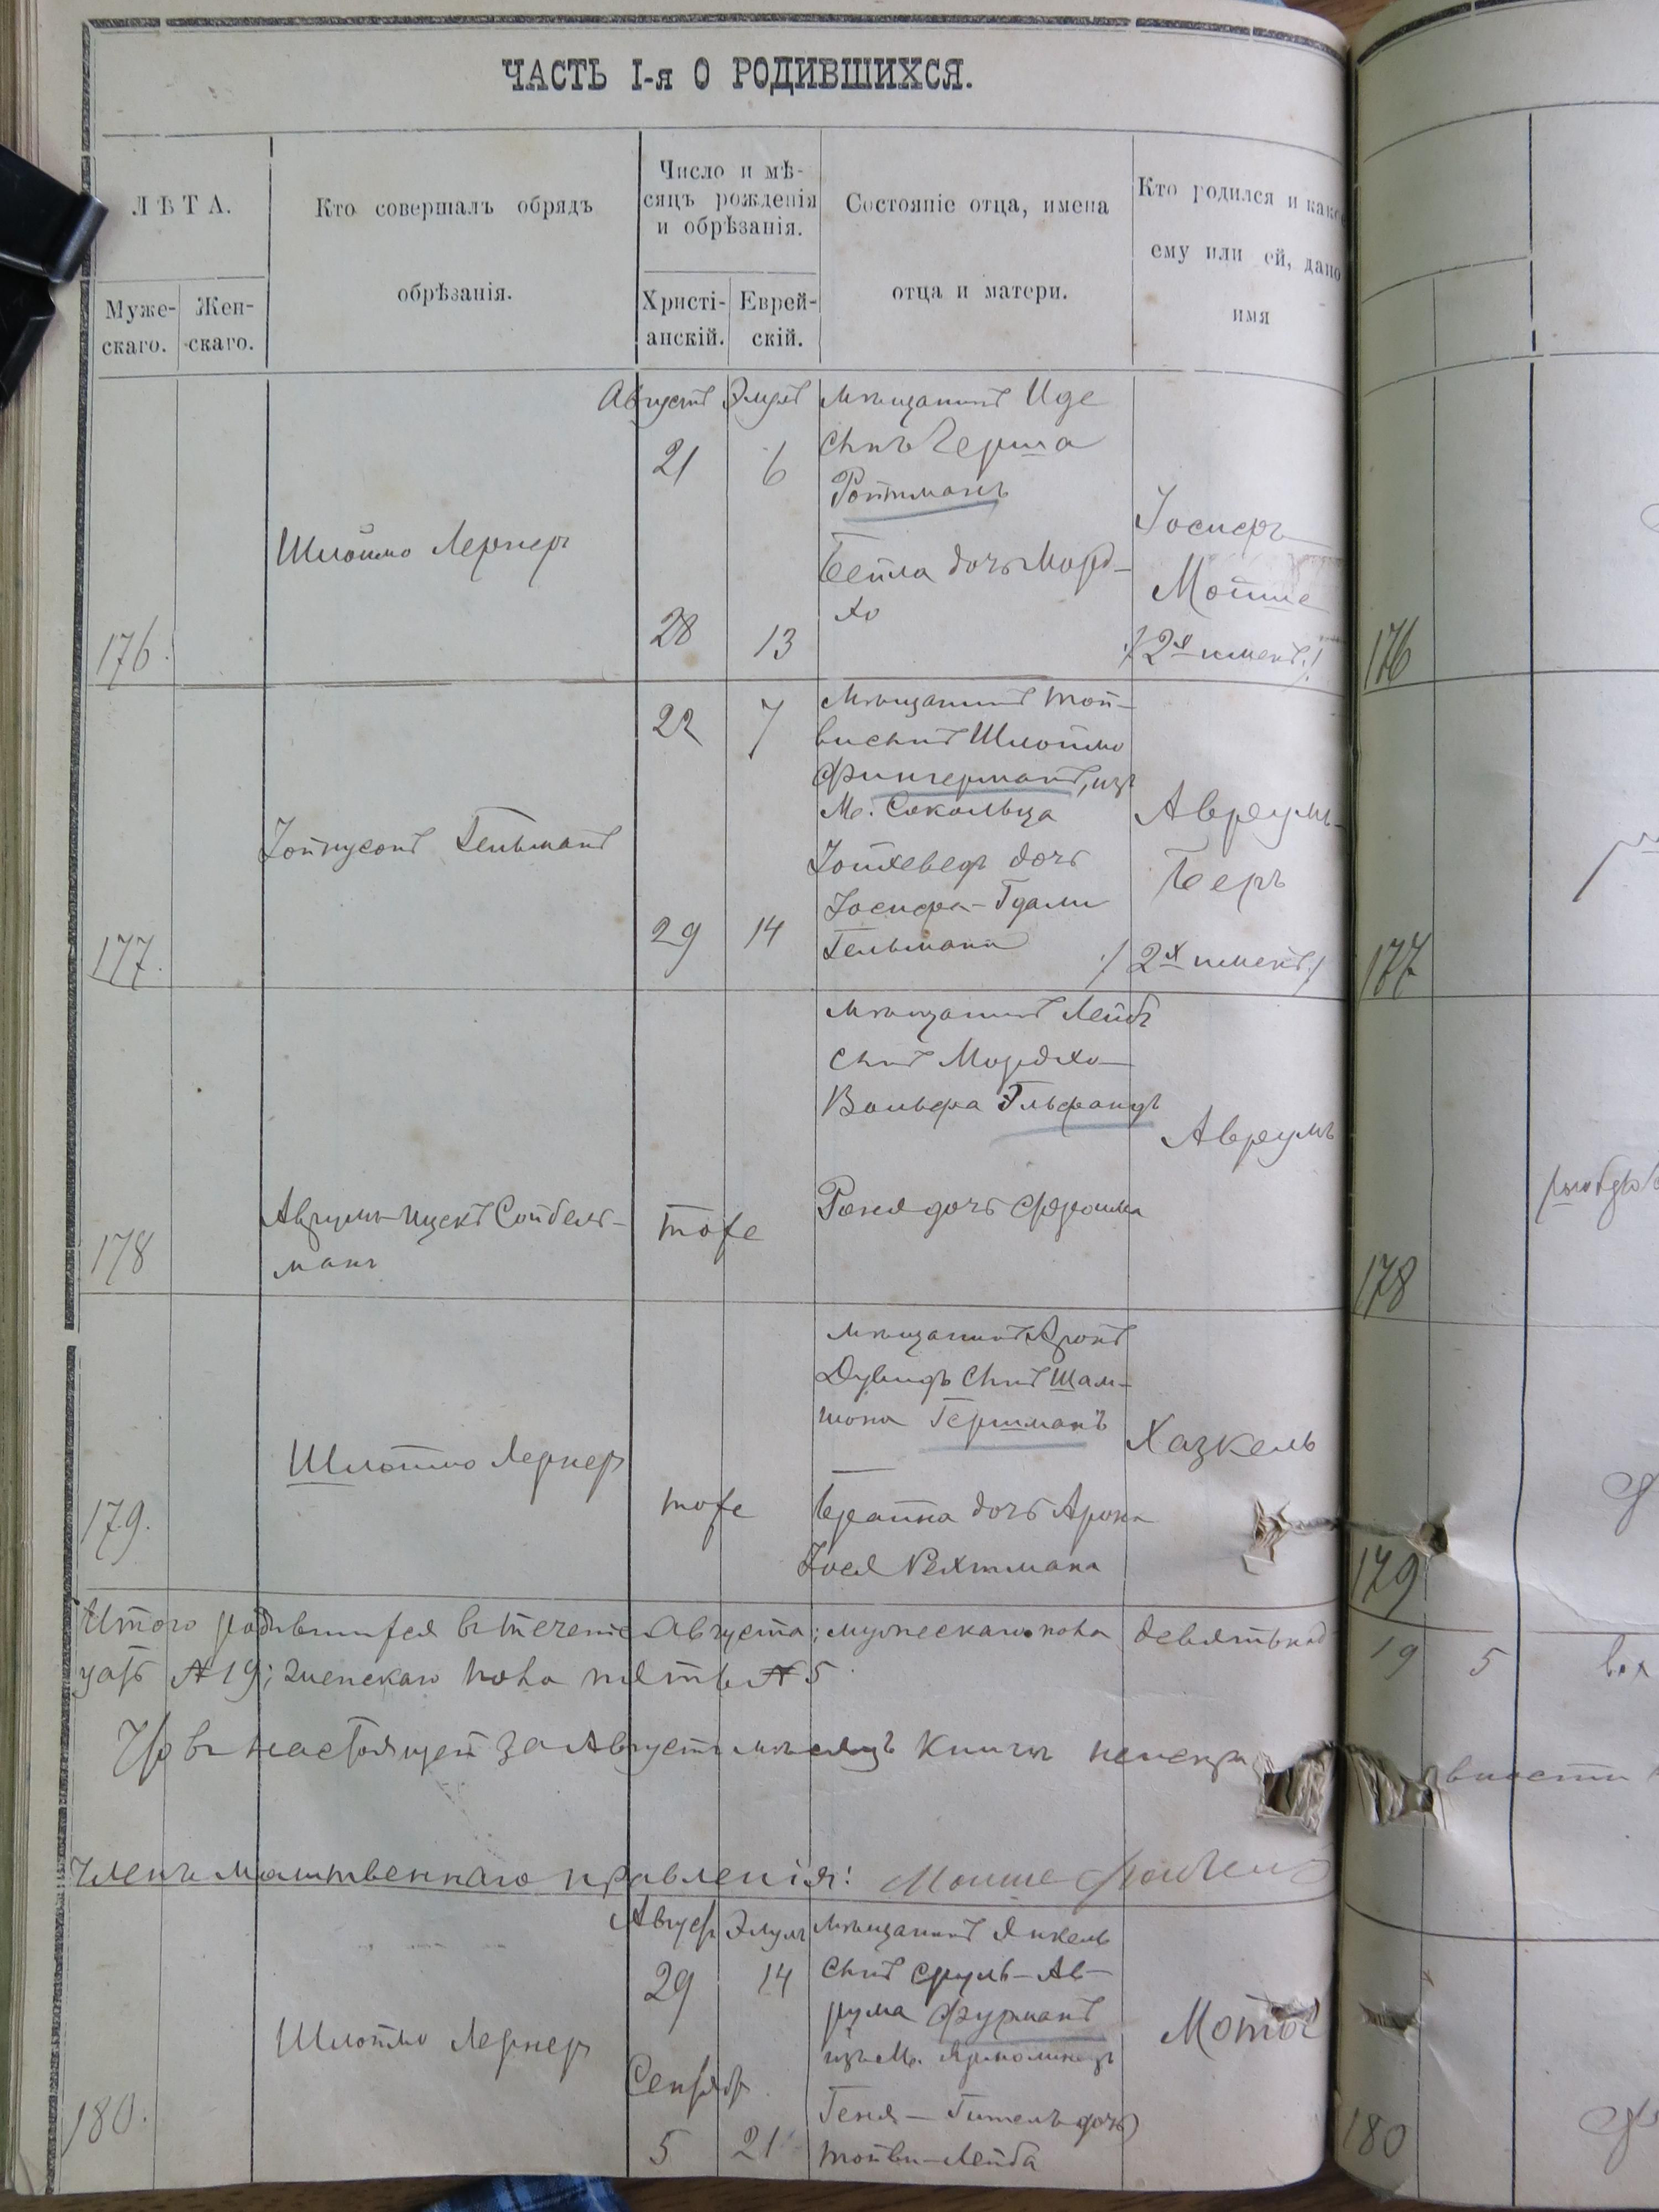 ЧАСТЬ I-я О РОДИВШИХСЯ.
ЛѢТА.
Муже-
скаго.
Жен-
скаго.
Кто совершалъ обрядъ
обрѣзанія.
Число и мѣ-
сяцъ рожденія
и обрѣзанія.
Христі-
анскій.
Еврей-
скій.
Состояніе отца, имена
отца и матери.
Кто родился и како
ему или ей, дано
имя
176.
Шлоймо Лернеръ
Августъ Элулъ
21 6
28 13
Мѣщанинъ Иде
сынъ Герша
Ройтманъ
Бейла дочь Морд-
хо
Іосифъ
Мойше
/2хъ именъ/
176
177.
Гельманъ
22 7
29 14
Мѣщанинъ Той-
висынъ Шлоймо
Фингерманъ, изъ
М. Сокольца
Іойхеведъ дочь
Іосифа-Гдали
Гельмана
Авреумъ-
Беръ
/2хъ именъ/
177
178
Аврумъ-Ицекъ Сойбель-
манъ
тоже
Мѣщанинъ Лейбъ
сынъ Мордхо-
Вольфа Гльфандъ
Реня дочь Фроима
Авреумъ
178
179.
Шлоймо Лернеръ
тоже
Мѣщанинъ Аронъ
Дувидъ сынъ Шам-
шона Гершманъ
Брайна дочь Арона
Іося Рехтмана
Хазкель
179
Итого родившихся въ теченіе Августа; мужескаго пола девятьнад
цать № 19; женскаго пола пять № 5
19 5
Что въ настоящей за Августъ мѣсяцъ книгѣ
Членъ молитвеннаго правленія: Мойше
180.
Шлоймо Лернеръ
Август Элулъ
29 14
Сентяб
5 21
Мѣщанинъ Янкель
сынъ Сруль-Ав-
рума Фурманъ
изъ М. Ярмолинецъ
Геня-Гитель дочь
Тойви-Лейба
Мотьо
180